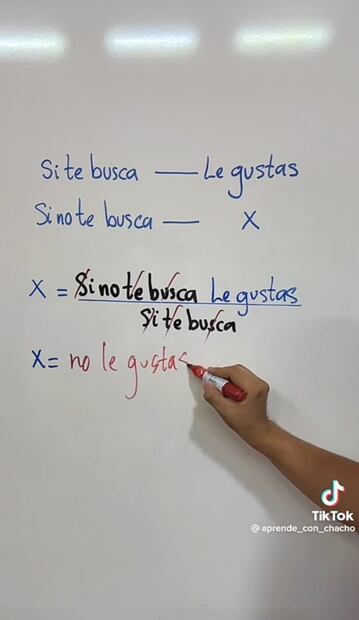 Si te busca — Le gustas
Si no te busca — X
X = Si no te busca Le gustas
Si te busca
X = no le gustas
TikTok
@aprende_con_chacho